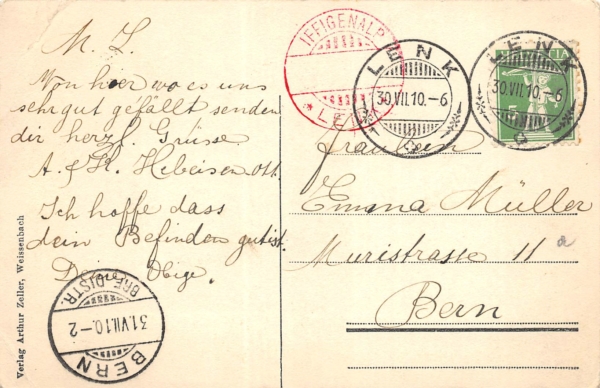 M. L.
Von hier wo es uns
sehr gut gefällt senden
dir herzl. Grüsse
A. & H. Hebeisen Ott.
Ich hoffe dass
dein Befinden gut ist.
Deine Obige.
IFFIGENALP
* LENK
LENK
30.VII.10.–6
LENK
30.VII.10.–6
HELVETIA
5
Fräulein
Emma Müller
Muristrasse 11 a
Bern
BERN
31.VII.10.–2
BRF. DISTR.
Verlag Arthur Zeller, Weissenbach